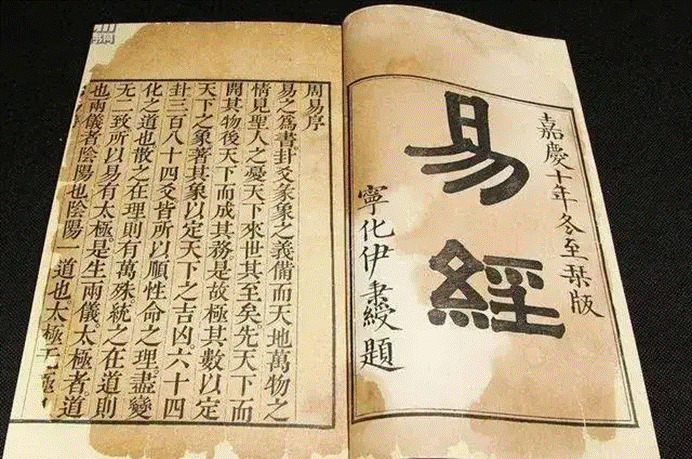 嘉慶十年冬至栞版
易經
寧化伊秉綬題
周易序
易之爲書卦爻彖象之義備而天地萬物之
情見聖人之憂天下來世其至矣。先天下而
開其物後天下而成其務。是故極其數以定
天下之象著其象以定天下之吉凶六十四
卦三百八十四爻皆所以順性命之理。盡變
化之道也散之在理則有萬殊。統之在道則
无二致所以易有太極是生兩儀太極者。道
也兩儀者陰陽也陰陽一道也太極无極